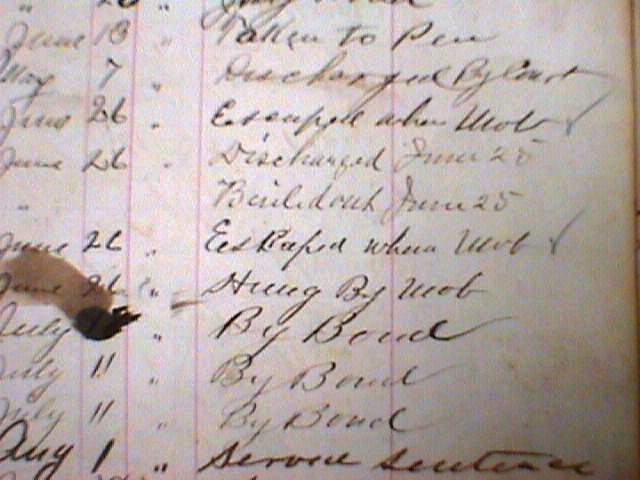 " 26 " Bond
June 13 " Taken to Pen
May 7 " Discharged By Court
June 26 " Escaped when Mob
June 26 " Discharged June 25
" Bailed out June 25
June 26 " Eskaped when Mob
June 26 " Hung By Mob
July " By Bond
July 11 " By Bond
July 11 " By Bond
Aug 1 " Served Sentence